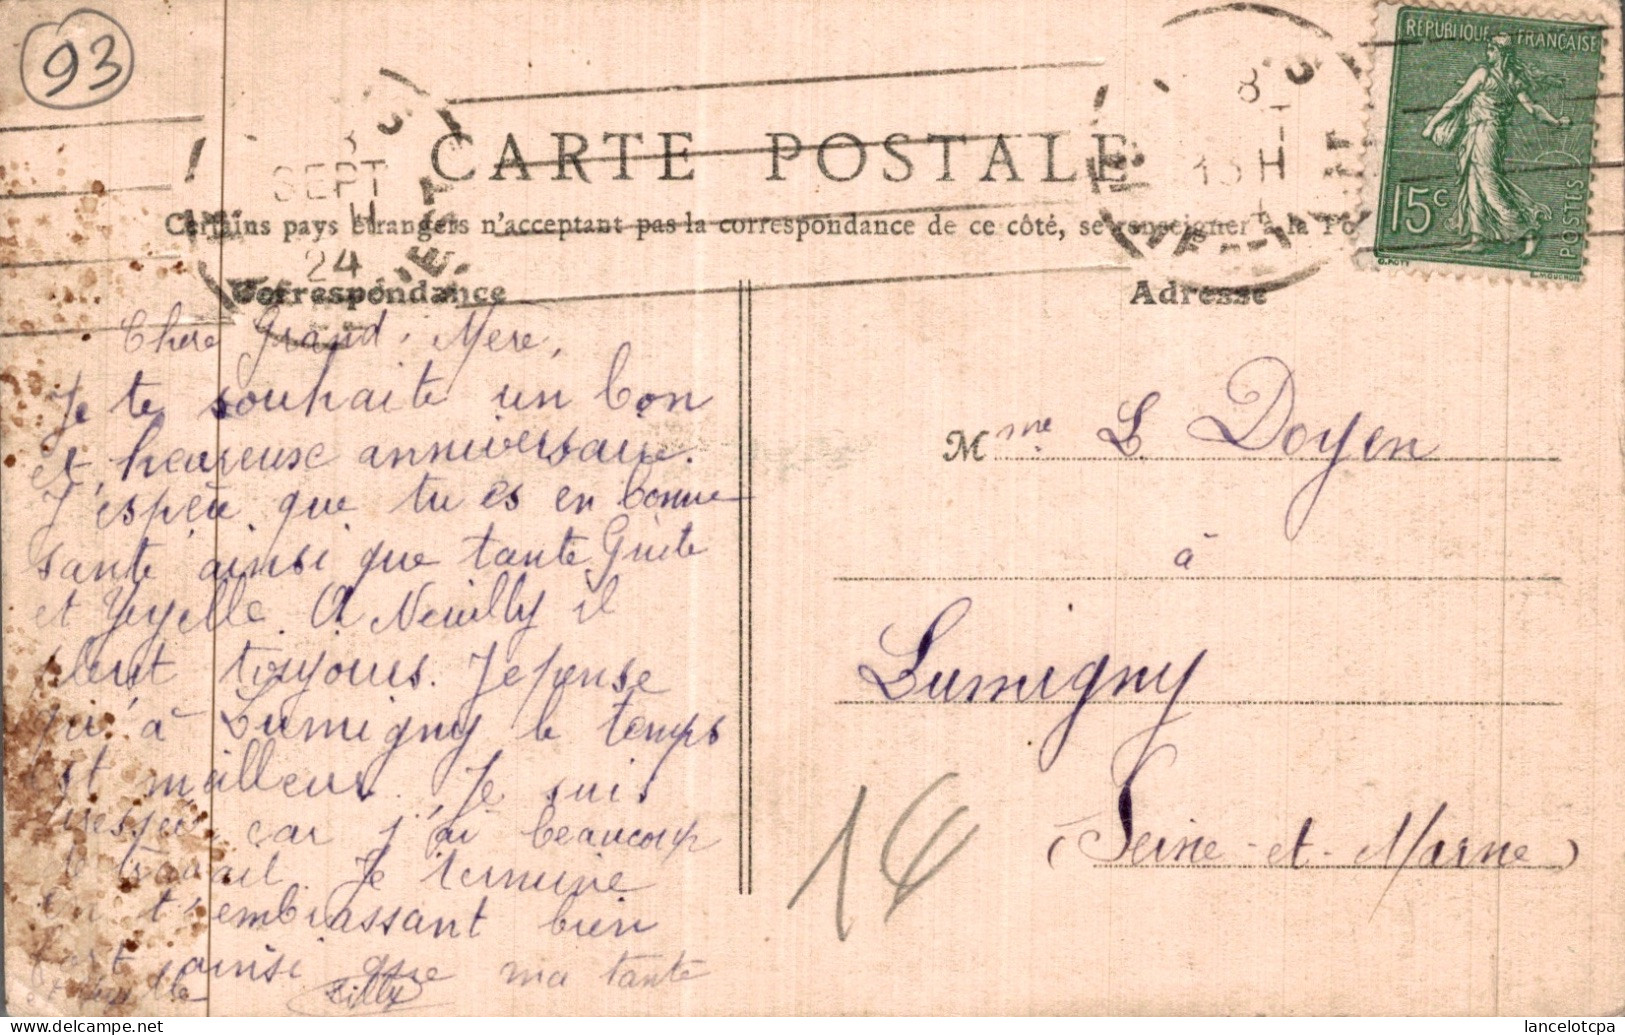 93
REPUBLIQUE FRANÇAISE
15c
POSTES
8
SEPT
24
CARTE POSTALE
Certains pays étrangers n'acceptant pas la correspondance de ce côté, se renseigner à la Po
Correspondance
Adresse
Chere Grand-Mere,
Je te souhaite un bon
et heureuse anniversaire.
J'espère que tu es en bonne
santé ainsi que tante Guite
et Yeyelle. A Neuilly il
pleut toujours. Je pense
qu'à Lumigny le temps
est meilleur. Je suis
car j'ai beaucoup
travail. Je termine
en t'embrassant bien
fort ainsi que ma tante
et
Mme L Doyen
à
Lumigny
(Seine-et-Marne)
1€
lancelotcpa